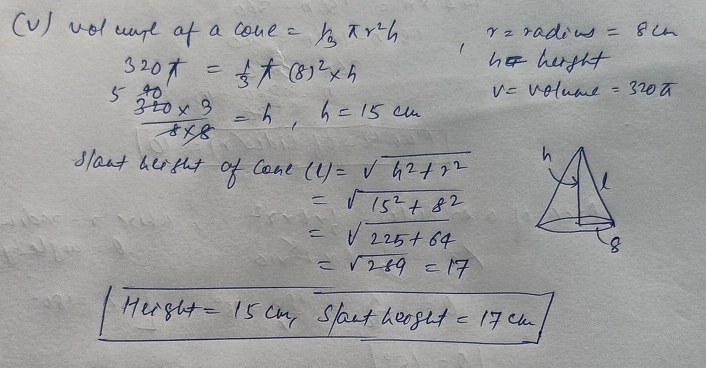 (V) volume of a cone = 1/3 πr²h , r = radius = 8cm
h = height
320π = 1/3 π (8)² × h
v = volume = 320π
5 40
320 × 3 / 8×8 = h , h = 15 cm
Slant height of Cone (l) = √h²+r²
= √15²+8²
= √225+64
= √289 = 17
h l 8
Height = 15 cm, Slant height = 17 cm